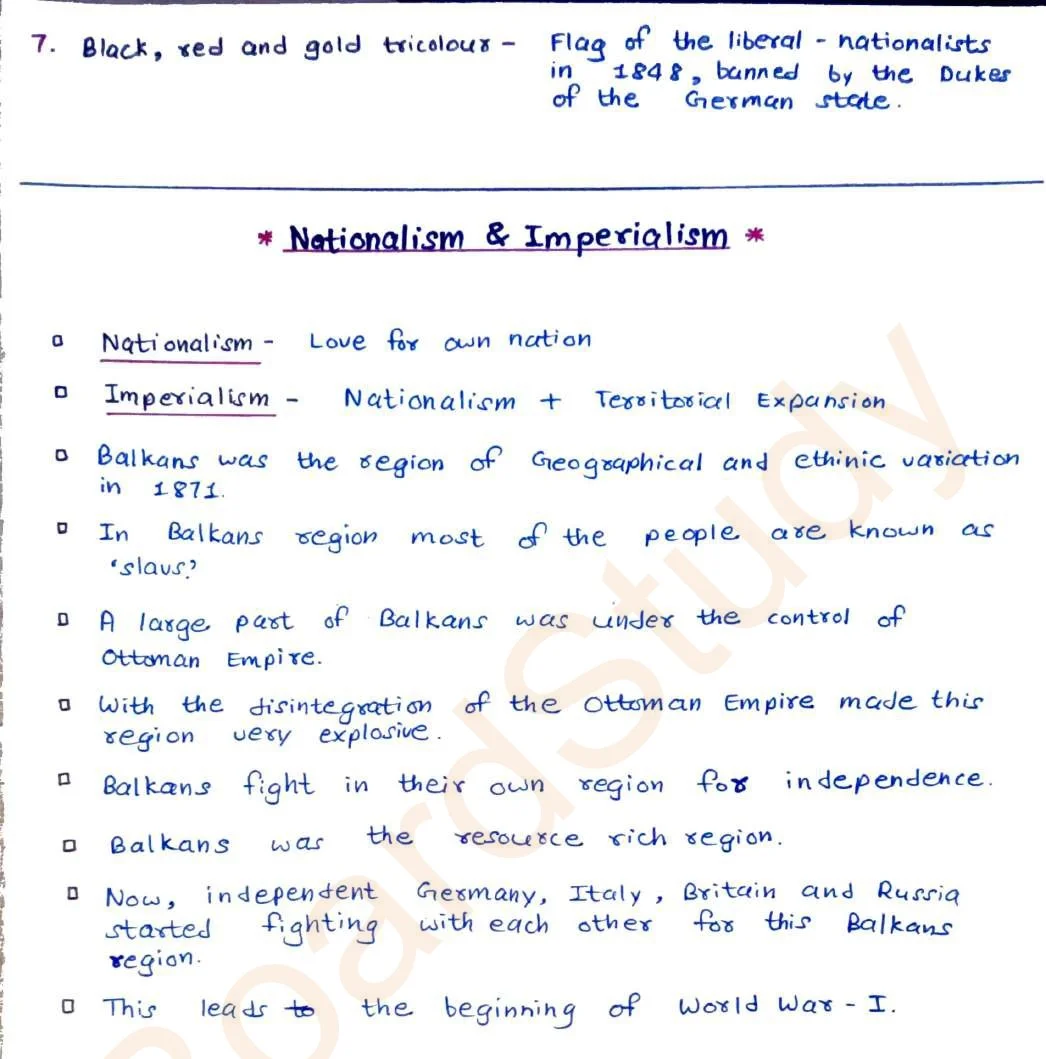 7. Black, red and gold tricolour - Flag of the liberal - nationalists
in 1848, banned by the Dukes
of the German state.
* Nationalism & Imperialism *
▫ Nationalism - Love for own nation
▫ Imperialism - Nationalism + Territorial Expansion
▫ Balkans was the region of Geographical and ethinic variation
in 1871.
▫ In Balkans region most of the people are known as
'slavs.'
▫ A large part of Balkans was under the control of
Ottoman Empire.
▫ With the disintegration of the Ottoman Empire made this
region very explosive.
▫ Balkans fight in their own region for independence.
▫ Balkans was the resource rich region.
▫ Now, independent Germany, Italy, Britain and Russia
started fighting with each other for this Balkans
region.
▫ This leads to the beginning of World War - I.
BoardStudy